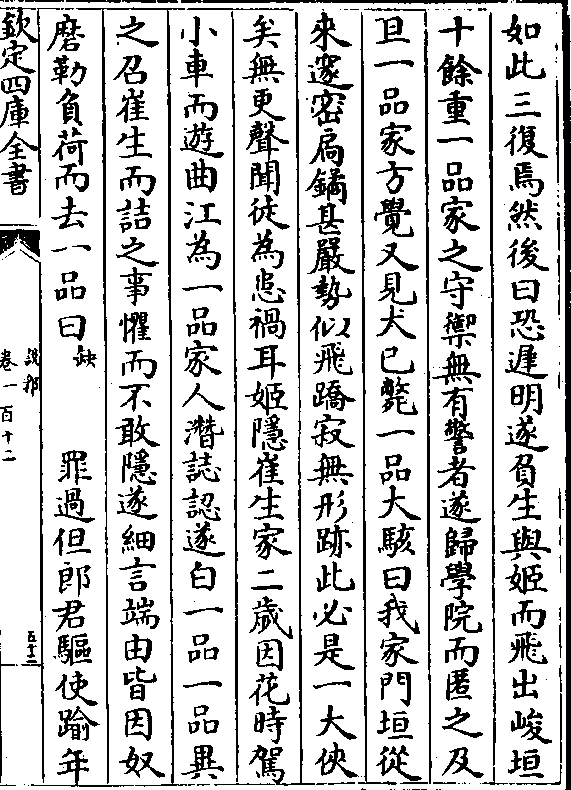 如此三復焉然後曰恐遲明遂負生與姬而飛出峻垣
十餘重一品家之守禦無有警者遂歸學院而匿之及
旦一品家方覺又見犬已斃一品大駭曰我家門垣從
來邃密扃鐍甚嚴勢似飛蹻寂無形跡此必是一大俠
矣無更聲聞徒為患禍耳姬隱崔生家二歲因花時駕
小車而遊曲江為一品家人潛誌認遂白一品一品異
之召崔生而詰之事懼而不敢隱遂細言端由皆因奴
磨勒負荷而去一品曰缺 罪過但郎君驅使踰年
欽定四庫全書
說郛
卷一百十二
五十二